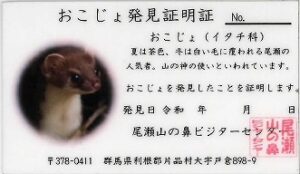 おこじょ発見証明証 No.
おこじょ(イタチ科)
夏は茶色、冬は白い毛に覆われる尾瀬の
人気者。山の神の使いといわれています。
おこじょを発見したことを証明します。
発見日 令和 年 月 日
尾瀬山の鼻ビジターセンター
尾瀬
山の鼻
〒378-0411 群馬県利根郡片品村大字戸倉898-9